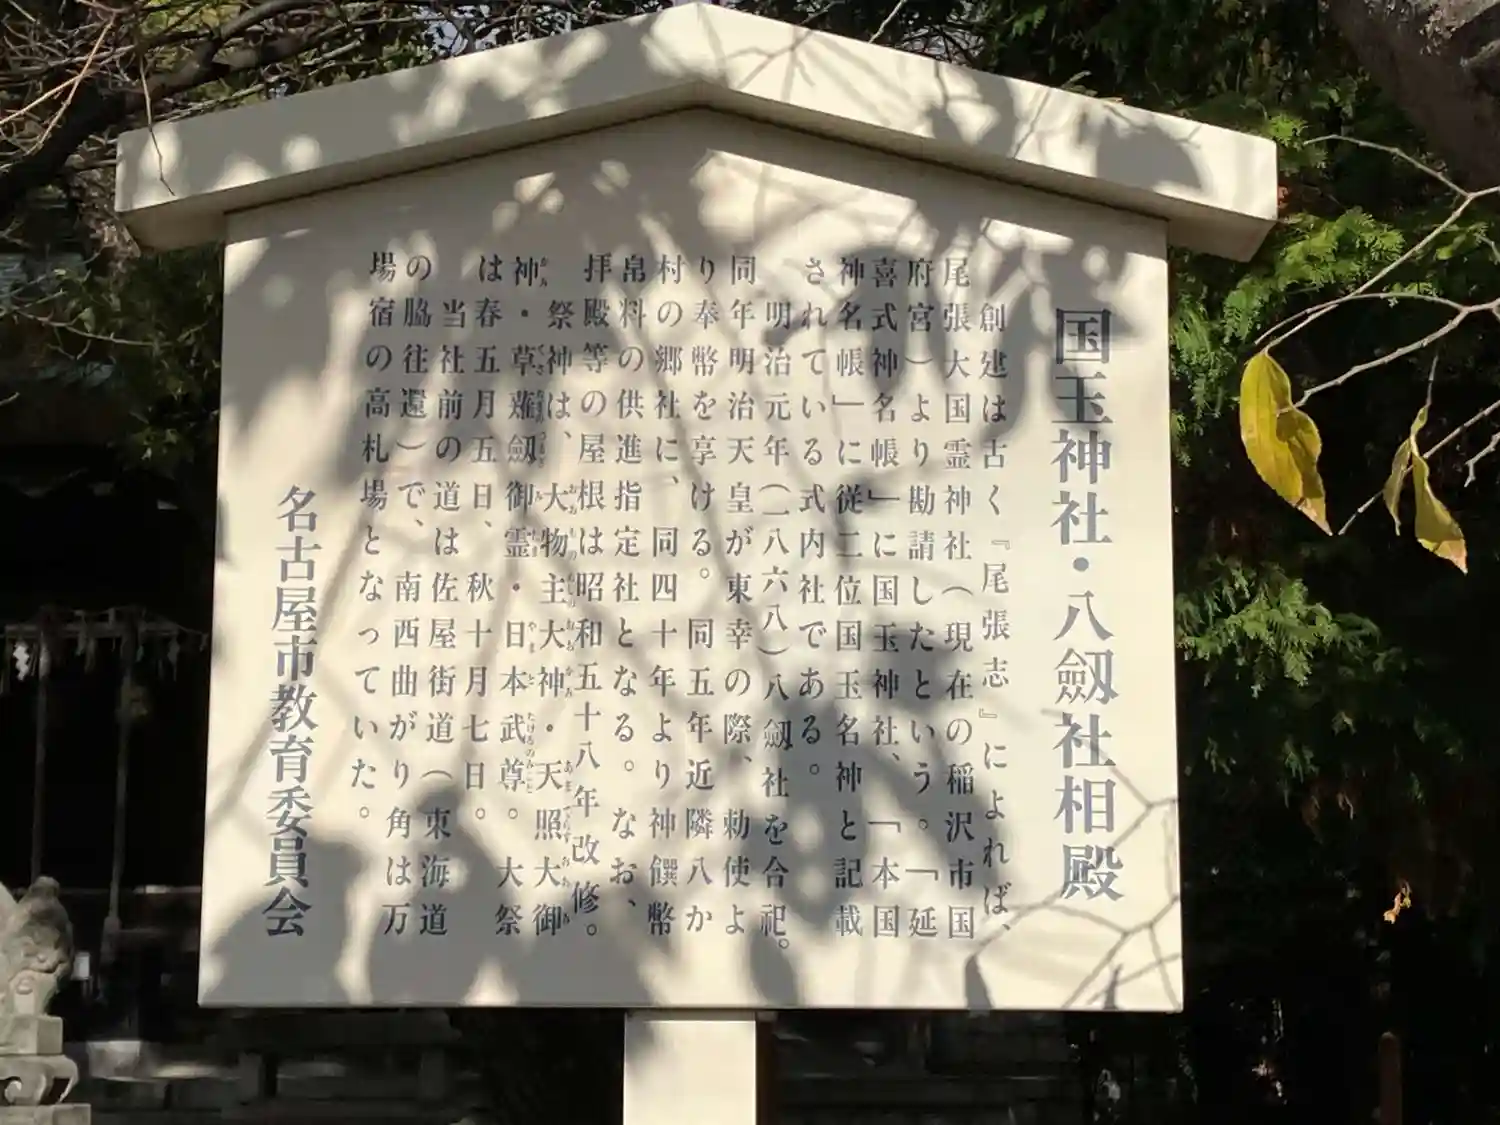 国玉神社・八剱社相殿
創建は古く『尾張志』によれば、
尾張大国霊神社（現在の稲沢市国
府宮）より勘請したという。「延
喜式神名帳」に国玉神社、「本国
神名帳」に従二位国玉名神と記載
されている式内社である。
明治元年（一八六八）八剱社を合祀。
同年明治天皇が東幸の際、勅使よ
り奉幣を享ける。同五年近隣八か
村の郷社に、同四十年より神饌幣
帛料の供進指定社となる。なお、
拝殿等の屋根は昭和五十八年改修。
祭神は、大物主大神・天照大御
神・草薙劔御霊・日本武尊。大祭
は春五月五日、秋十月七日。
当社前の道は佐屋街道（東海道
の脇往還）で、南西曲がり角は万
場宿の高札場となっていた。
名古屋市教育委員会